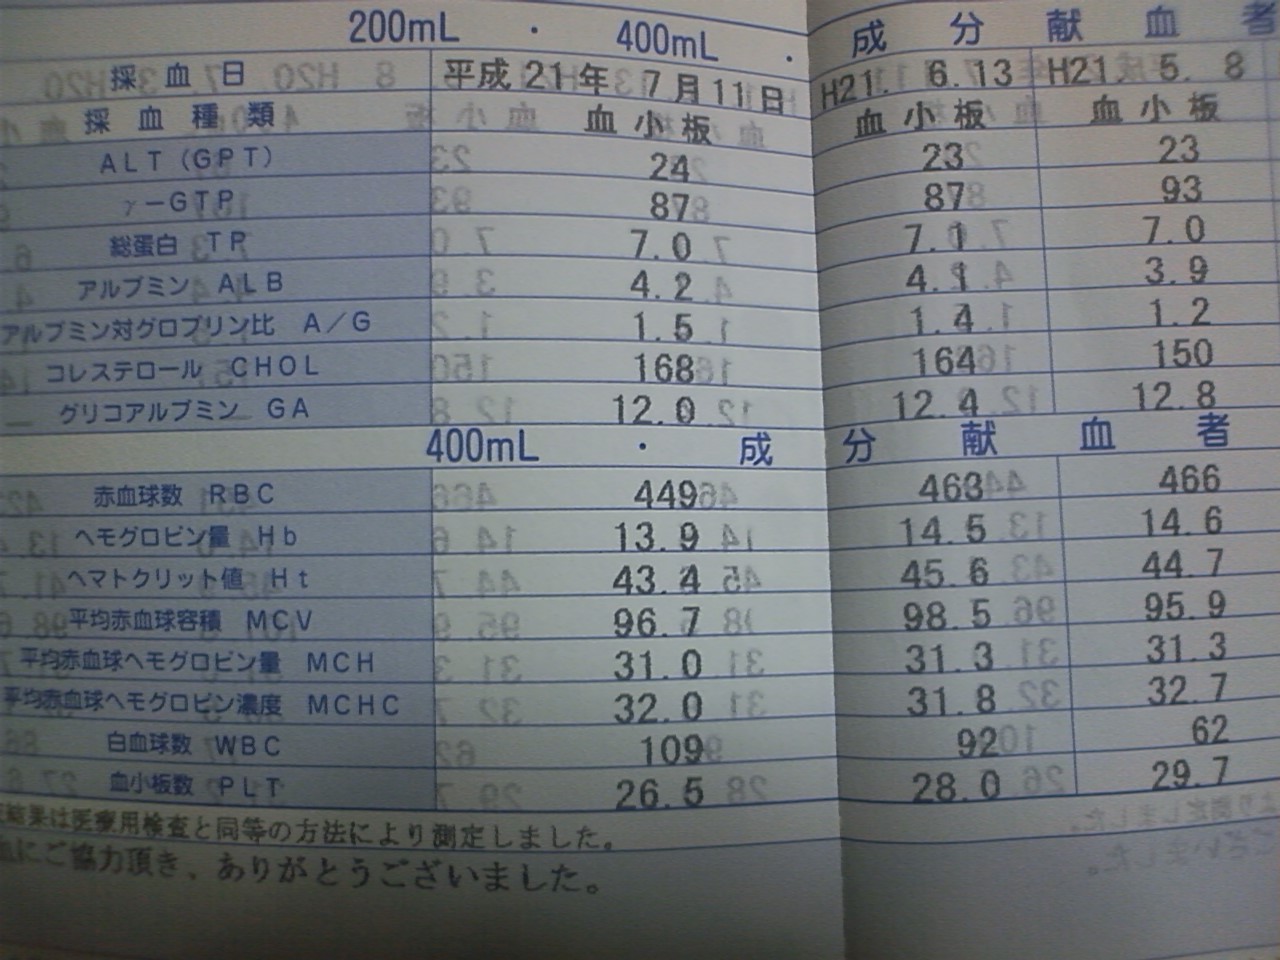 200mL ・ 400mL ・ 成分献血者
採血日 平成21年 7月11日 H21. 6.13 H21. 5. 8
採血種類 血小板 血小板 血小板
ALT(GPT) 24 23 23
γ-GTP 87 87 93
総蛋白 TP 7.0 7.1 7.0
アルブミン ALB 4.2 4.1 3.9
アルブミン対グロブリン比 A/G 1.5 1.4 1.2
コレステロール CHOL 168 164 150
グリコアルブミン GA 12.0 12.4 12.8
400mL ・ 成分献血者
赤血球数 RBC 449 463 466
ヘモグロビン量 Hb 13.9 14.5 14.6
ヘマトクリット値 Ht 43.4 45.6 44.7
平均赤血球容積 MCV 96.7 98.5 95.9
平均赤血球ヘモグロビン量 MCH 31.0 31.3 31.3
平均赤血球ヘモグロビン濃度 MCHC 32.0 31.8 32.7
白血球数 WBC 109 92 62
血小板数 PLT 26.5 28.0 29.7
結果は医療用検査と同等の方法により測定しました。
血にご協力頂き、ありがとうございました。